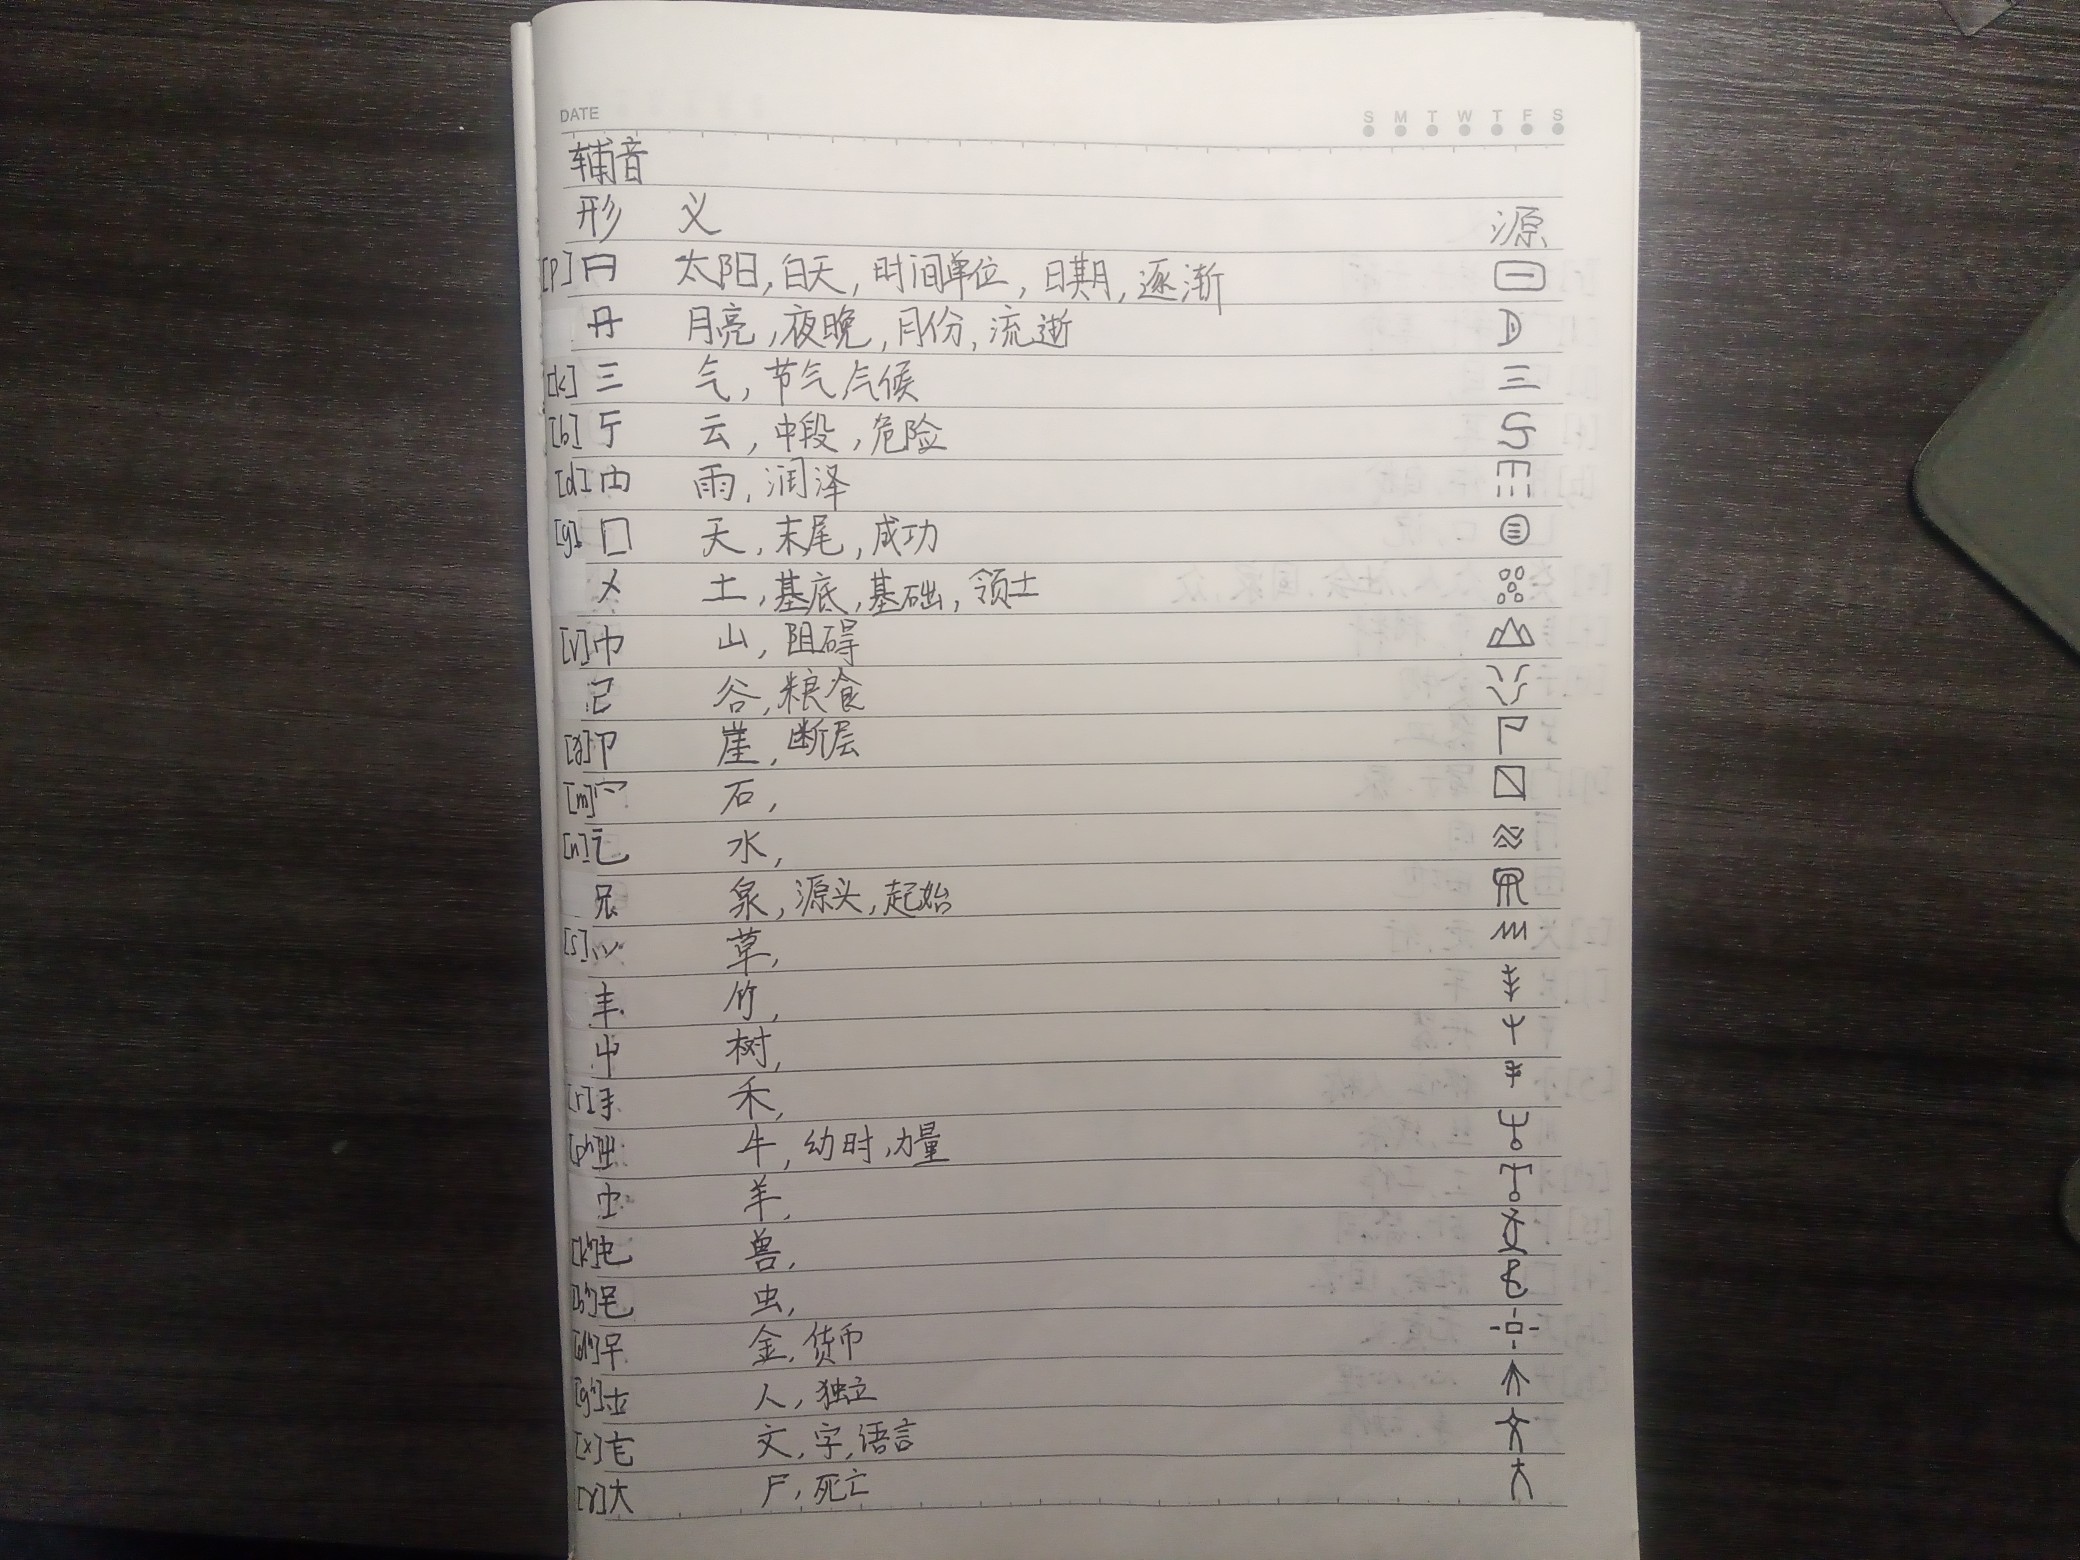 DATE S M T W T F S
辅音
形 义 源
[p] 太阳,白天,时间单位,日期,逐渐
月亮,夜晚,月份,流逝
[k] 三 气,节气,气候 三
[b] 云,中段,危险
[d] 雨,润泽
[g] 天,末尾,成功
土,基底,基础,领土
[v] 山,阻碍
谷,粮食
崖,断层
[m] 石,
[n] 水,
泉,源头,起始
[s] 草,
竹,
树,
[r] 禾,
[pʰ] 牛,幼时,力量
羊,
[kʰ] 兽,
[bʰ] 虫,
[dʰ] 金,货币
[gʰ] 人,独立
[x] 文,字,语言
[ɣ] 大 尸,死亡